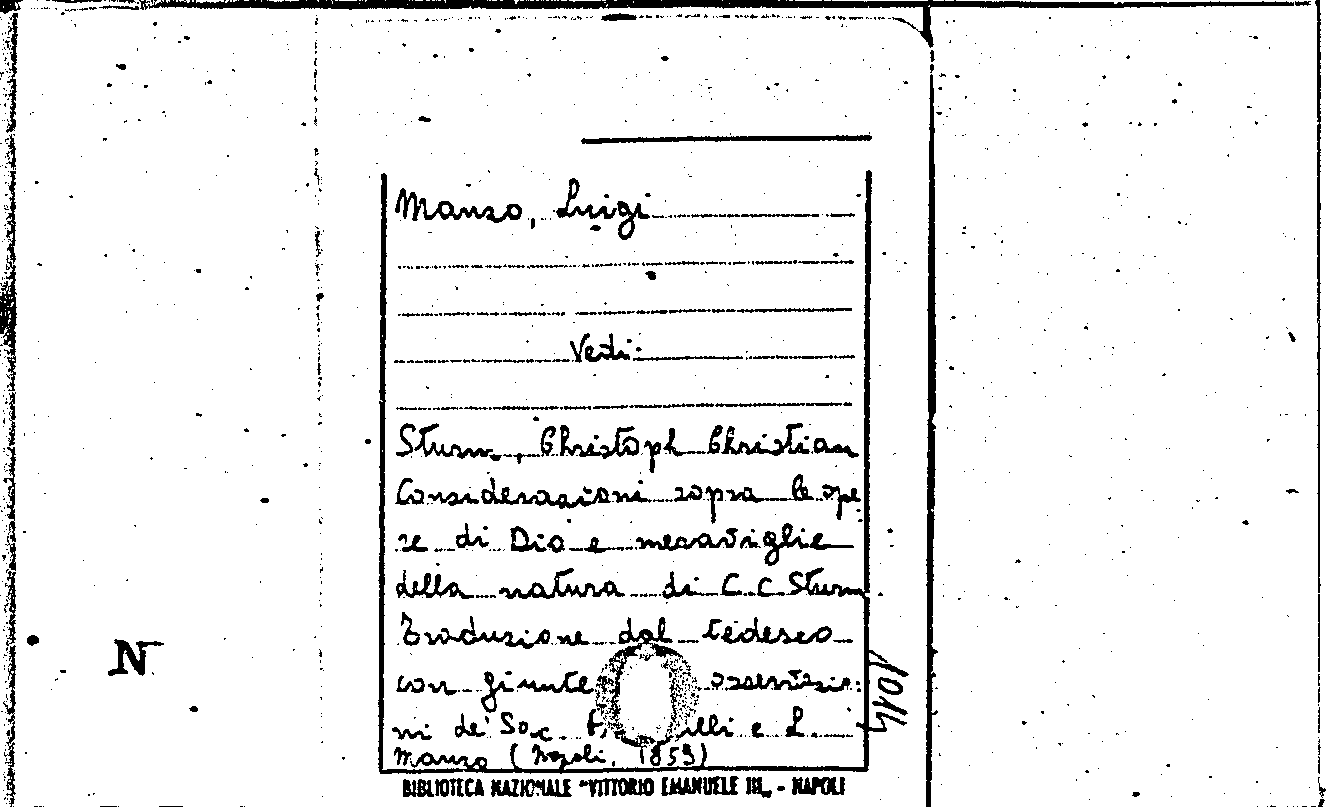 Manzo, Luigi
Vedi:
Sturm, Christoph Christian
Considerazioni sopra le ope
re di Dio e meraviglie
della natura di C. C. Sturm
Traduzione dal tedesco
con giunte osservazio:
ni de' Sac. illi e L.
Manzo (Napoli, 1853)
BIBLIOTECA NAZIONALE "VITTORIO EMANUELE III„ - NAPOLI
N